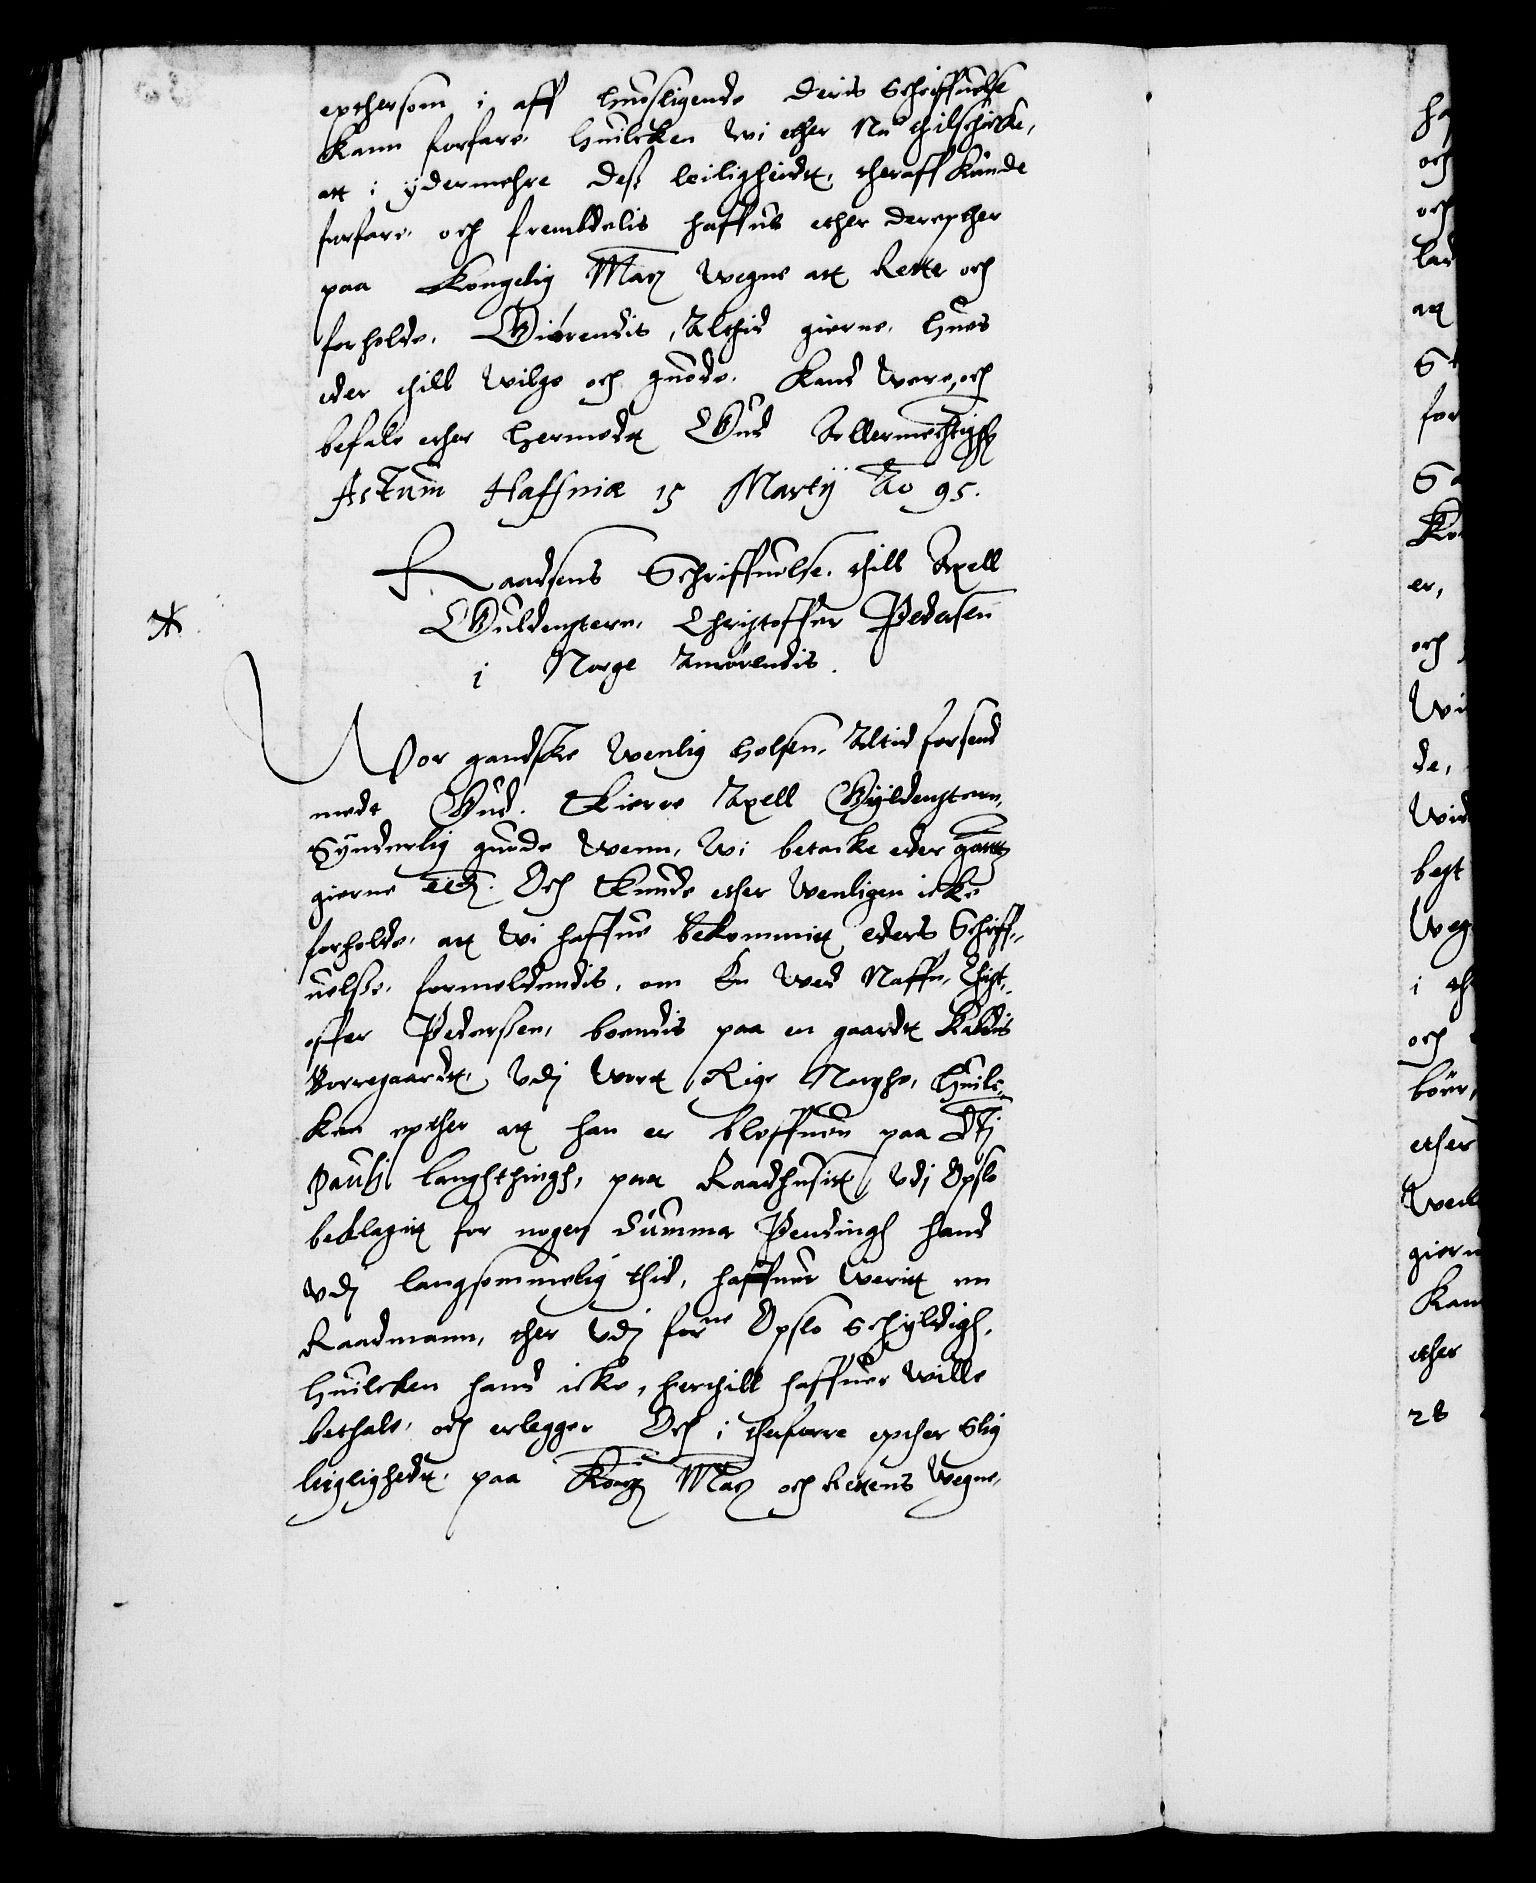 epthersom i aff huosligende deris Schriffuelse
kann forfare. Huilcken wi ether Nu thilschicke,
att i ydermehre deß leilighedt, theraff kunde
forfare, och fremdelis haffue ether derepther
paa Kongelig May Wegne att Rette och
forholde. Giörendis, Altid gierne, hues
eder thill Wilge och guode. Kand were, och
befale ether hermedt Gud Allermechtigste
Actum Haffniæ 15 Martij Ao 95.
Raadsens Schriffuelse, thill Axell
Guldenstern, Christoffer Pedersen
i Norge Anrörendis.
Wor gandske Wenlig helsen, Altid forsend
medt Gud. Kierre Axell Gyldenstern,
Synderlig guode Wenn, Wi betacke eder gantz
gierne etc. Och kunde ether Wenligen icke
forholde, att wi haffue bekommit eders Schriff-
uelße, formeldendis, om En Ved Naffn, Christ-
offer Pederßen, boendis paa en gaardt kaldis
Borregaardt, Vdj Wort Rige Norghe, Huilc-
ken epther att han er bleffuen paa Sti
Pauli langhthingh, paa Raadhusit, vdj Opslo
beklagit for nogen Summa Pendingh hand
vdj langsommelig thid, haffuer Werit en
Raadmann, ther vdj forne Opslo schyldigh,
Huilcken hand icke, herthill haffuer Wille
bethale, och erlegge. Och i therforre epther slig
leiglighedt, paa Kong May och Rettens Wegne,
ha
och
och
lad
att
S
for
S
er,
och
Wi
de,
Wid
best
Weg
i th
och
böör,
ether
Well
giern
Kan
ether
28